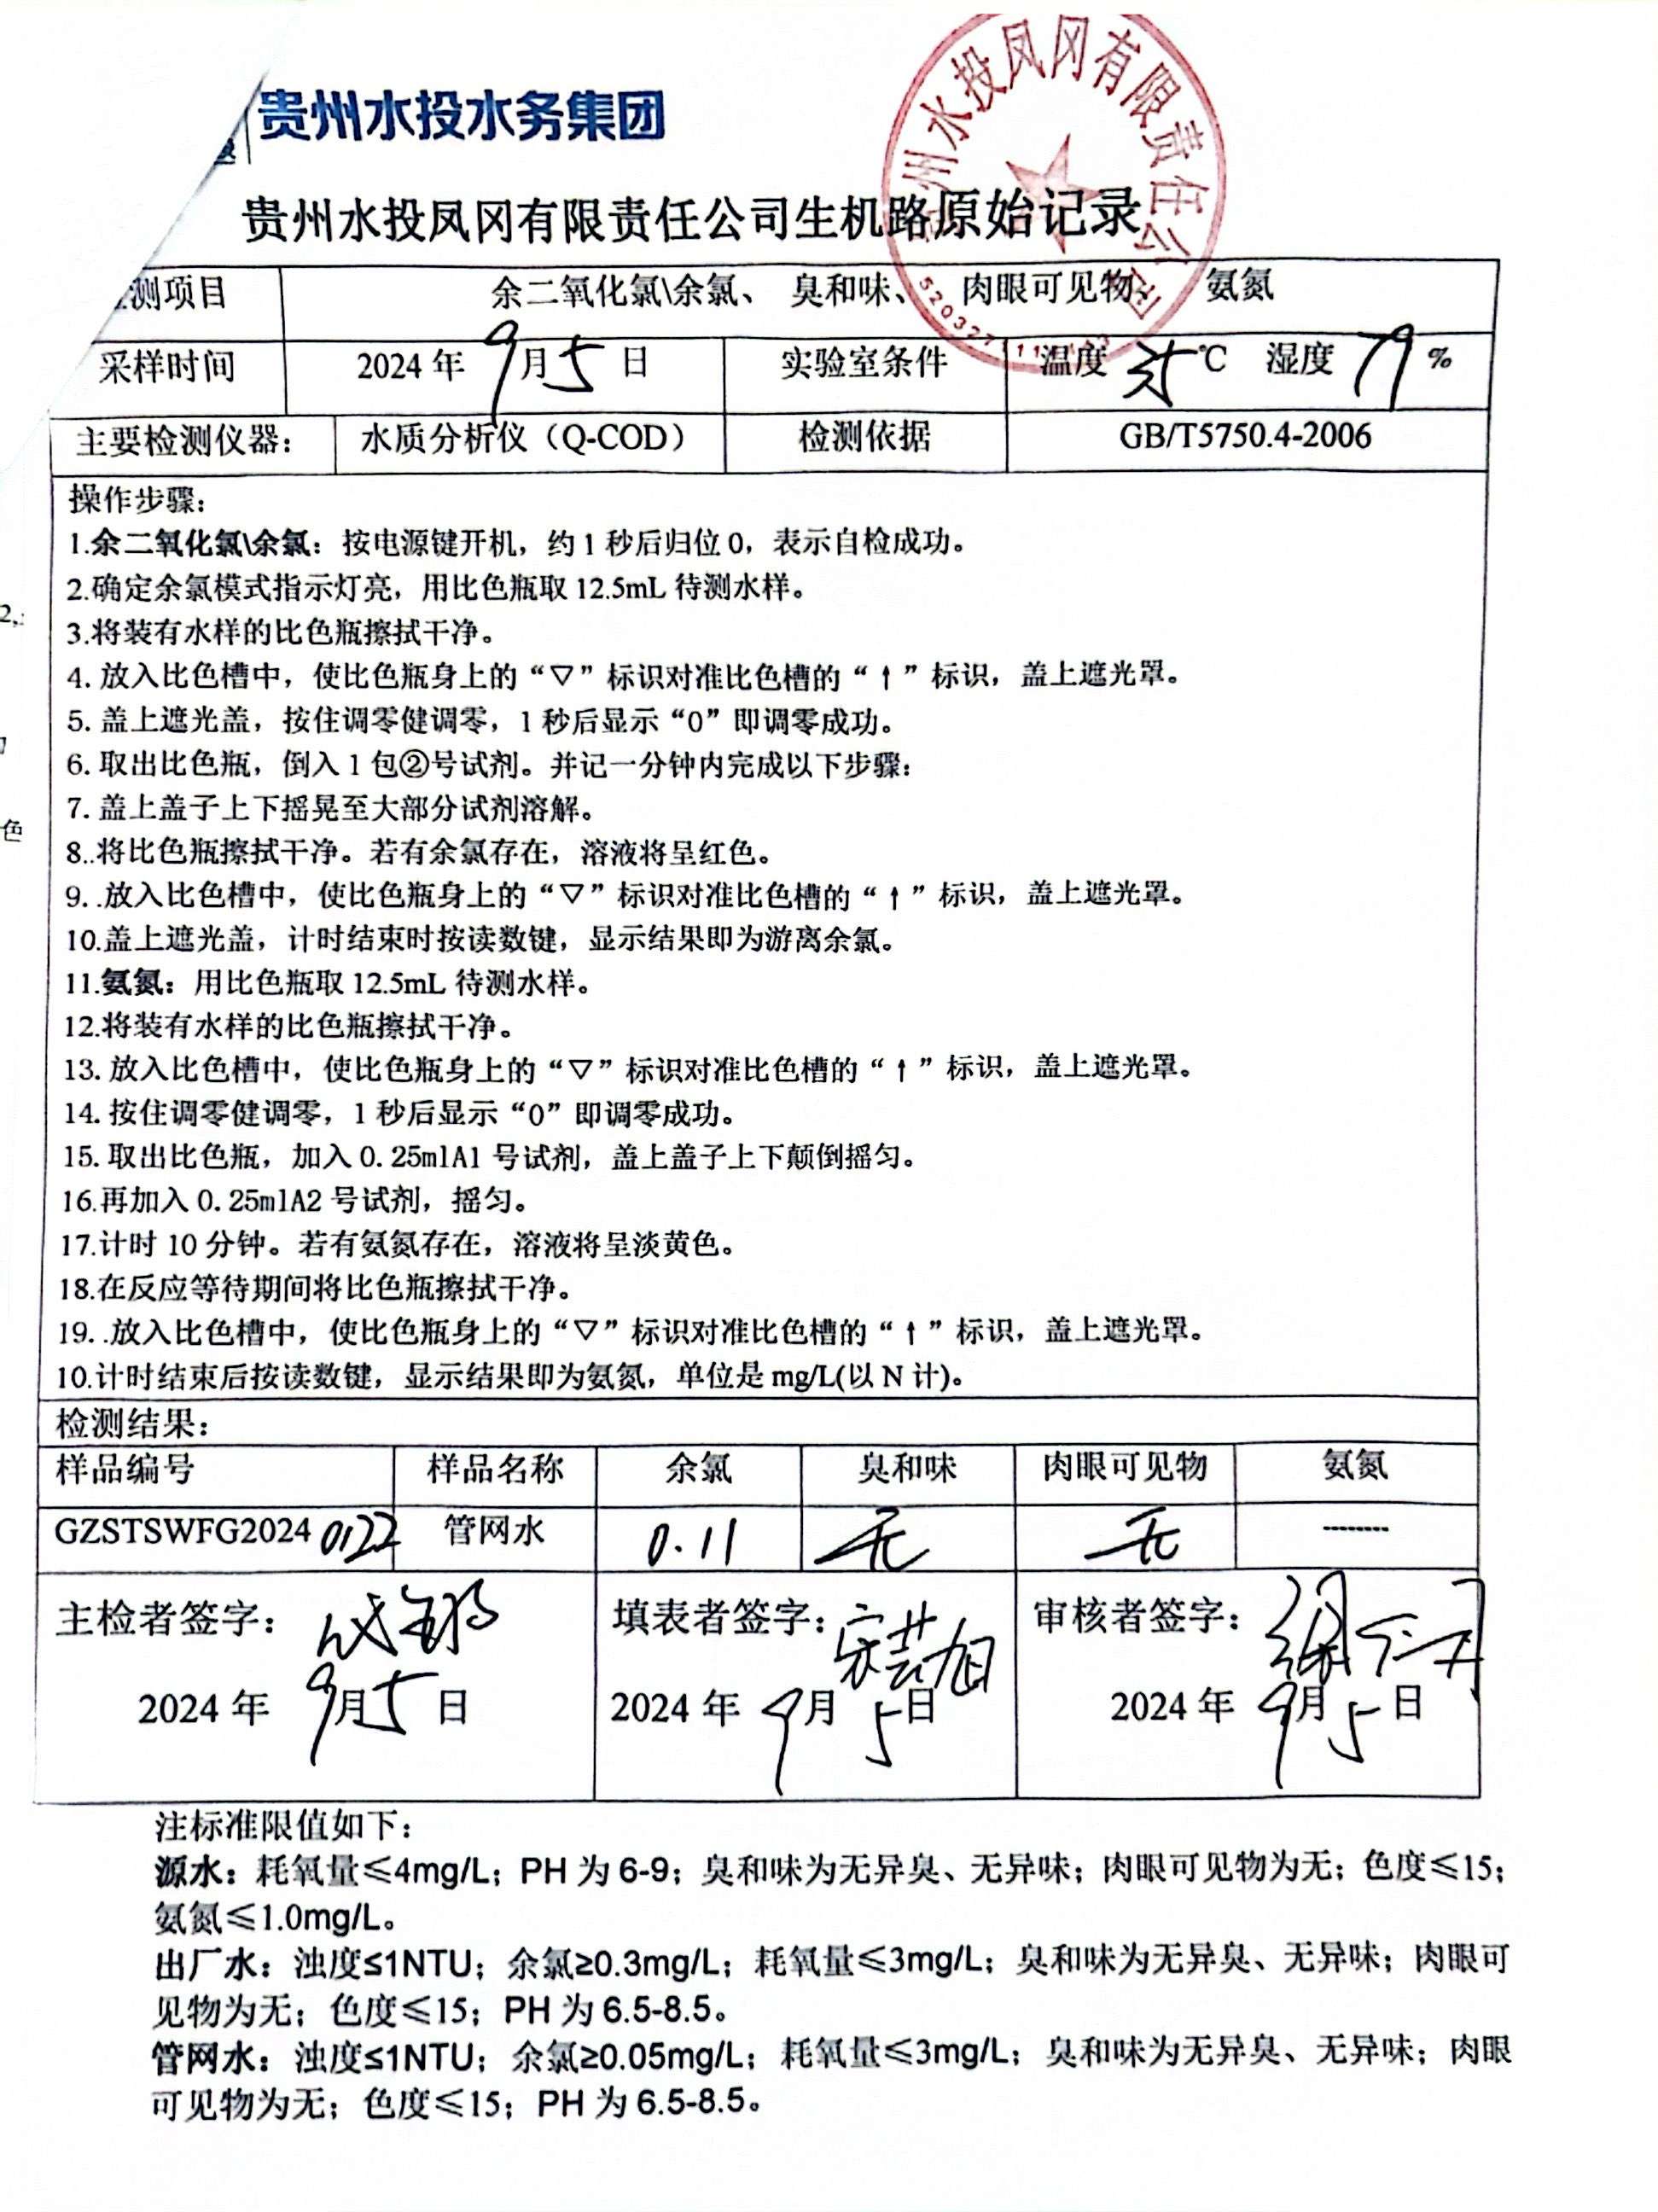 贵州水投水务集团
州水投凤冈有限责任公司
贵州水投凤冈有限责任公司生机路原始记录
测项目 余二氧化氯\余氯、 臭和味、 肉眼可见物、 氨氮
采样时间 2024年 9月5日 实验室条件 温度 ℃ 湿度 79 %
主要检测仪器： 水质分析仪（Q-COD） 检测依据 GB/T5750.4-2006
操作步骤：
1.余二氧化氯\余氯：按电源键开机，约1秒后归位0，表示自检成功。
2.确定余氯模式指示灯亮，用比色瓶取12.5mL待测水样。
3.将装有水样的比色瓶擦拭干净。
4. 放入比色槽中，使比色瓶身上的“▽”标识对准比色槽的“↑”标识，盖上遮光罩。
5. 盖上遮光盖，按住调零健调零，1秒后显示“0”即调零成功。
6. 取出比色瓶，倒入1包②号试剂。并记一分钟内完成以下步骤：
7. 盖上盖子上下摇晃至大部分试剂溶解。
8..将比色瓶擦拭干净。若有余氯存在，溶液将呈红色。
9. .放入比色槽中，使比色瓶身上的“▽”标识对准比色槽的“↑”标识，盖上遮光罩。
10.盖上遮光盖，计时结束时按读数键，显示结果即为游离余氯。
11.氨氮：用比色瓶取12.5mL待测水样。
12.将装有水样的比色瓶擦拭干净。
13. 放入比色槽中，使比色瓶身上的“▽”标识对准比色槽的“↑”标识，盖上遮光罩。
14. 按住调零健调零，1秒后显示“0”即调零成功。
15. 取出比色瓶，加入0.25mlA1号试剂，盖上盖子上下颠倒摇匀。
16.再加入0.25mlA2号试剂，摇匀。
17.计时10分钟。若有氨氮存在，溶液将呈淡黄色。
18.在反应等待期间将比色瓶擦拭干净。
19. .放入比色槽中，使比色瓶身上的“▽”标识对准比色槽的“↑”标识，盖上遮光罩。
10.计时结束后按读数键，显示结果即为氨氮，单位是mg/L(以N计)。
检测结果：
样品编号 样品名称 余氯 臭和味 肉眼可见物 氨氮
GZSTSWFG20240122 管网水 0.11 无 无 --------
主检者签字： 填表者签字： 审核者签字：
2024年 9月5日 2024年 9月5日 2024年 9月5日
注标准限值如下：
源水：耗氧量≤4mg/L；PH为6-9；臭和味为无异臭、无异味；肉眼可见物为无；色度≤15；
氨氮≤1.0mg/L。
出厂水：浊度≤1NTU；余氯≥0.3mg/L；耗氧量≤3mg/L；臭和味为无异臭、无异味；肉眼可
见物为无；色度≤15；PH为6.5-8.5。
管网水：浊度≤1NTU；余氯≥0.05mg/L；耗氧量≤3mg/L；臭和味为无异臭、无异味；肉眼
可见物为无；色度≤15；PH为6.5-8.5。